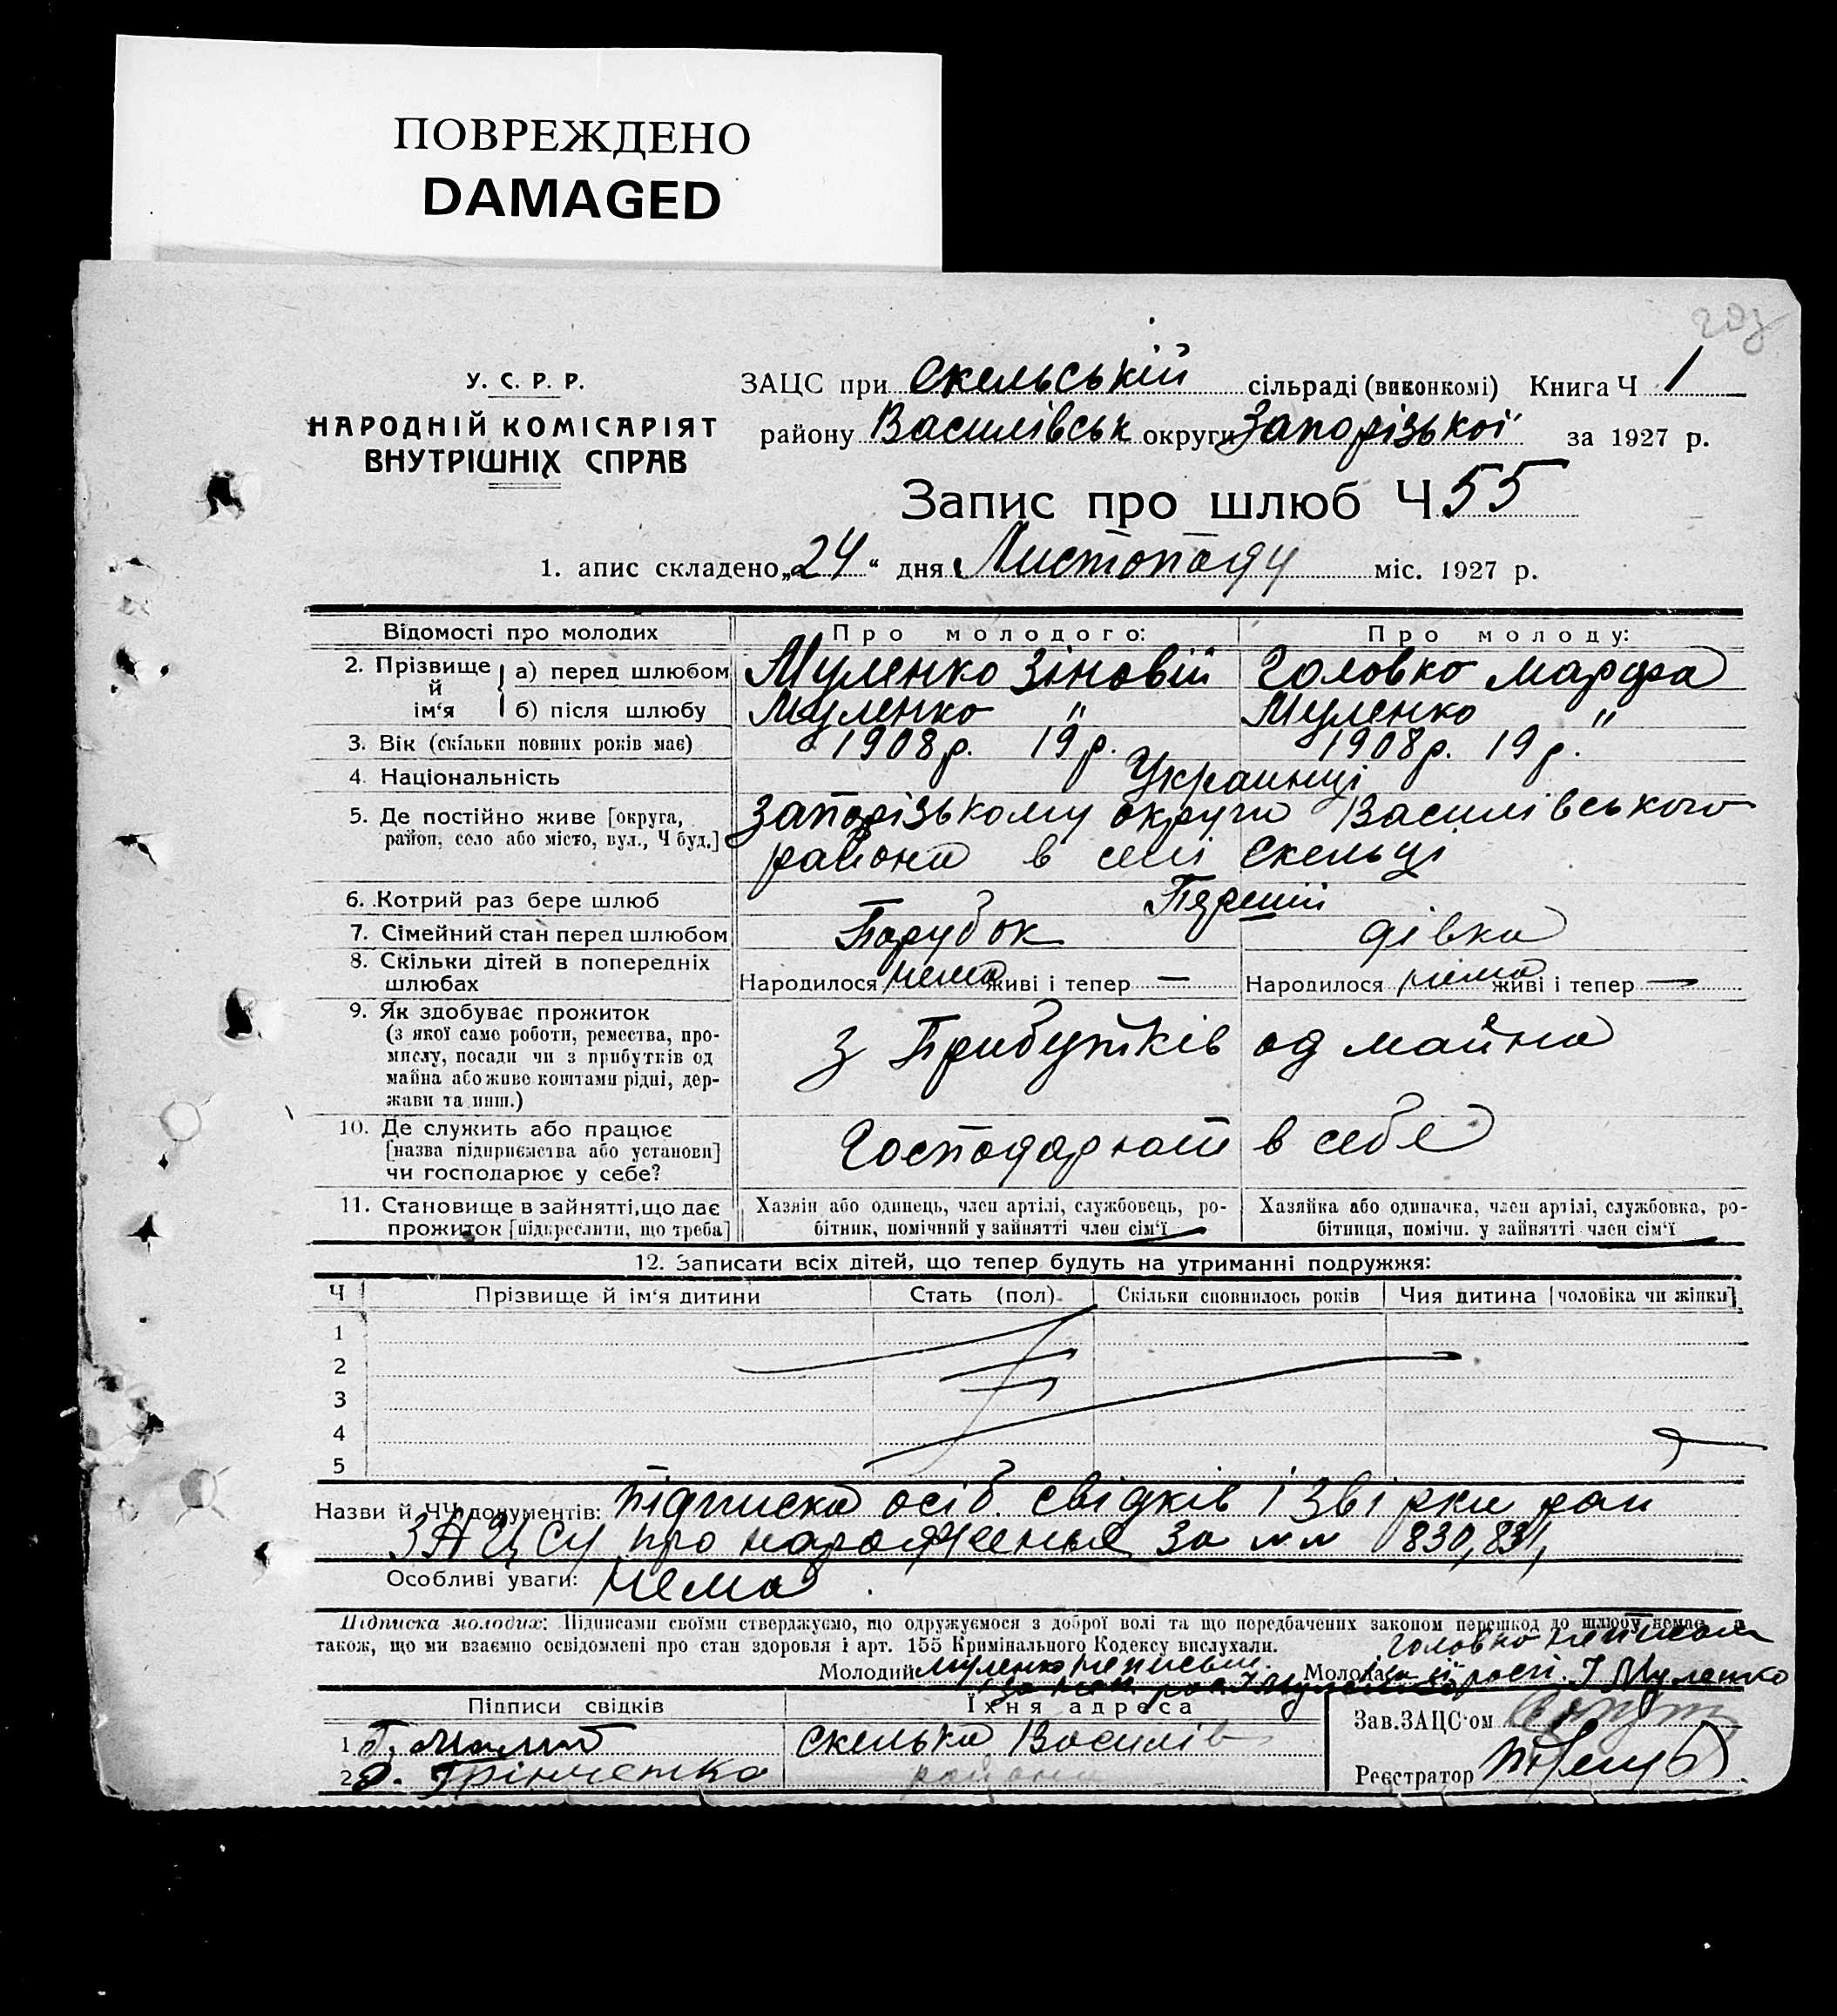 ПОВРЕЖДЕНО
DAMAGED
У. С. Р. Р.
НАРОДНІЙ КОМІСАРІЯТ
ВНУТРІШНІХ СПРАВ
ЗАЦС при Скельській сільраді (виконкомі) Книга Ч 1
району Василівськ округи Запорізької за 1927 р.
Запис про шлюб Ч 55
1. апис складено „24“ дня Листопаду міс. 1927 р.
Відомості про молодих Про молодого: Про молоду:
2. Прізвище й ім‘я а) перед шлюбом Муленко Зіновій Головко Марфа
б) після шлюбу Муленко " Муленко "
3. Вік (скільки повних років має) 1908 р. 19 р. 1908 р. 19 р.
4. Національність Украинці
5. Де постійно живе [округа, район, село або місто, вул., Ч буд.] Запорізькому округи Василівського
района в селі Скельці
6. Котрий раз бере шлюб Перший
7. Сімейний стан перед шлюбом Парубок дівка
8. Скільки дітей в попередніх шлюбах Народилося нема живі і тепер — Народилося нема живі і тепер —
9. Як здобуває прожиток
(з якої саме роботи, ремества, про-
мислу, посади чи з прибутків од
майна або живе коштами рідні, дер-
жави та инш.)
з Прибутків од майна
10. Де служить або працює
[назва підприємства або установи]
чи господарює у себе?
Господарюют в себе
11. Становище в зайнятті, що дає
прожиток [підкреслити, що треба]
Хазяїн або одинець, член артілі, службовець, ро-
бітник, помічний у зайнятті член сім‘ї
Хазяйка або одиначка, член артілі, службовка, ро-
бітниця, помічн. у зайнятті член сім‘ї
12. Записати всіх дітей, що тепер будуть на утриманні подружжя:
Ч Прізвище й ім‘я дитини Стать (пол) Скільки сповнилось років Чия дитина [чоловіка чи жінки]
1
2
3
4
5
Назви й ЧЧ документів: Підписка осіб. свідків і звірки рай
ЗАЦСу про народження за NN 830, 831,
Особливі уваги: Нема
Підписка молодих: Підписами своїми стверджуємо, що одружуємося з доброї волі та що передбачених законом перешкод до шлюбу немає, а
також, що ми взаємно освідомлені про стан здоровля і арт. 155 Кримінального Кодексу вислухали.
Головко
Молодий Муленко Молода І Муленко
Підписи свідків Їхня адреса Зав.ЗАЦС‘ом
1 Скелька Василів
2 района
Реєстратор